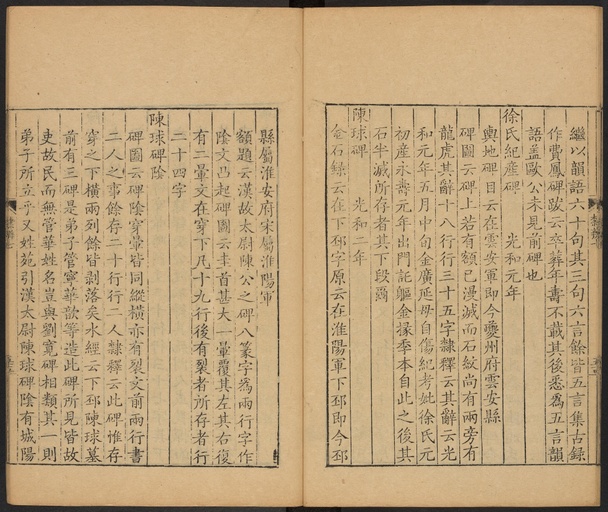 繼以韻語六十句其三句六言餘皆五言集古錄
作費鳳碑跋云卒葬年壽不載其後悉為五言韻
語蓋歐公未見前碑也
徐氏紀產碑 光和元年
輿地碑目云在雲安軍即今夔州府雲安縣
碑圖云碑上若有額已漫滅而石紋尚有兩旁有
龍虎其辭十八行行三十五字隸釋云其辭云光
和元年五月中旬金廣延母自傷紀考妣徐氏元
初產永壽元年出門託軀金掾季本自此之後其
石半滅所存者其下段爾
陳球碑 光和二年
金石錄云在下邳字原云在淮陽軍下邳即今邳
縣屬淮安府宋屬淮陽軍
額題云漢故太尉陳公之碑八篆字為兩行字作
陰文凸起碑圖云圭首甚大一暈覆其左其右復
有二暈文在穿下凡十九行後有裂者所存者行
二十四字
陳球碑陰
碑圖云碑陰穿暈皆同縱橫亦有裂文前兩行書
二人之事餘存二十行行二人隸釋云此碑惟存
穿之下橫兩列餘皆剝落矣水經云下邳陳球墓
前有三碑是弟子管寧華歆等造此碑所見皆故
吏故民而無管華姓名豈與劉寬碑相類其一則
弟子所立乎又姓苑引漢太尉陳球碑陰有城陽